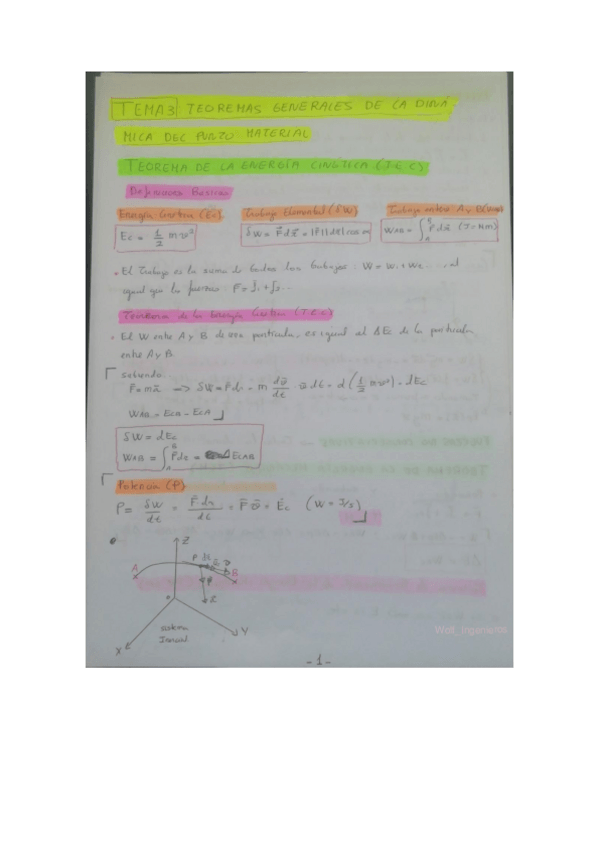 TEMA 3 TEOREMAS GENERALES DE LA DINÁ
MICA DEL PUNTO MATERIAL
TEOREMA DE LA ENERGÍA CINÉTICA (T.E.C)
Definiciones Básicas
Energía Cinética (Ec) Trabajo Elemental (δW) Trabajo entre A y B
Ec = 1/2 m v² δW = F dr = |F||dr| cos α W_AB = ∫_A^B F dr (J = N m)
• El Trabajo es la suma de todos los trabajos: W = W₁ + W₂ ...., al
igual que las fuerzas F = f₁ + f₂...
Teorema de la Energía Cinética (T.E.C)
• El W entre A y B de una partícula, es igual al ΔEc de la partícula
entre A y B.
sabiendo:
F = ma → δW = F dr = m dv/dt · v dt = d(1/2 m v²) = dEc
W_AB = Ec_B - Ec_A
δW = dEc
W_AB = ∫_A^B F dr = Ec_AB
Potencia (P)
P = δW/dt = F dr/dt = F v = Ėc (W = J/s)
Z
A P dr B
F
O R
sistema
Inercial
X Y
Wolf_Ingenieros
- 1 -